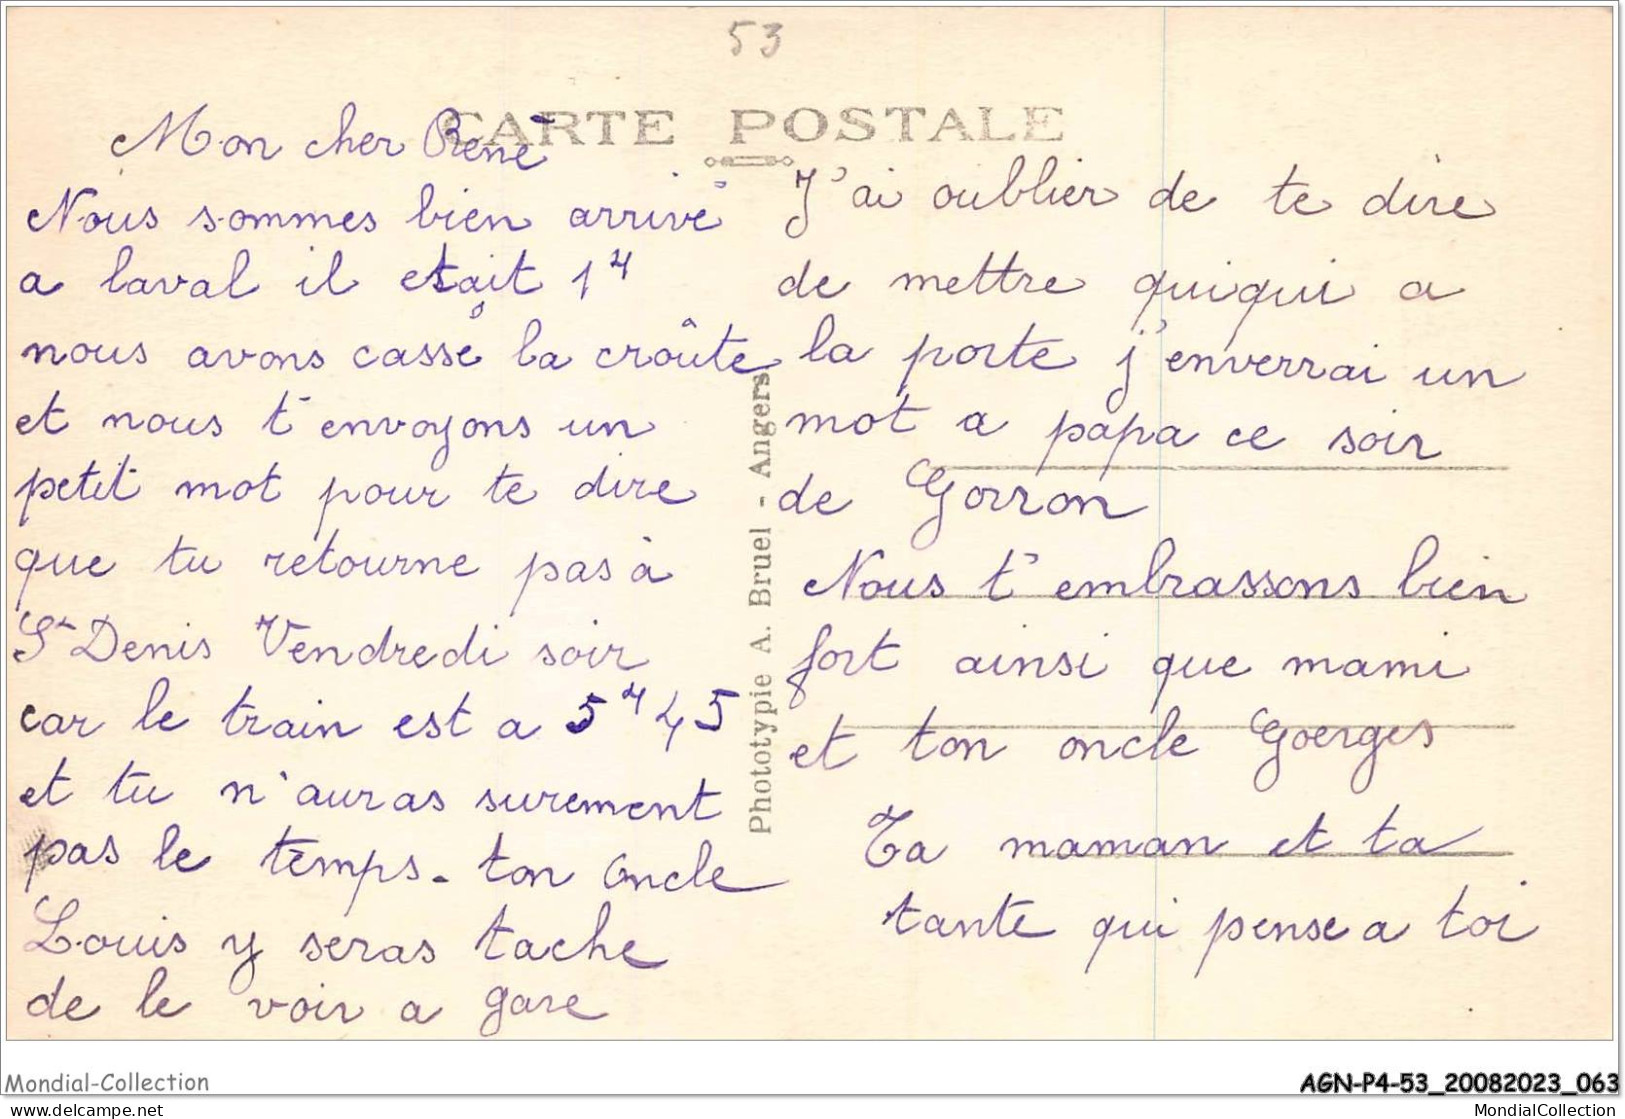 53
CARTE POSTALE
Mon cher René
Nous sommes bien arrivé
a laval il etait 1H
nous avons cassé la croûte
et nous t'envoyons un
petit mot pour te dire
que tu retourne pas à
St Denis Vendredi soir
car le train est a 5H45
et tu n'auras surement
pas le temps. ton oncle
Louis y seras tache
de le voir a gare
Phototypie A. Bruel - Angers
J'ai oublier de te dire
de mettre quiqui a
la porte j'enverrai un
mot a papa ce soir
de Gorron
Nous t'embrassons bien
fort ainsi que mami
et ton oncle Goerges
Ta maman et ta
tante qui pense a toi
Mondial-Collection
AGN-P4-53_20082023_063
fr.delcampe.net
MondialCollection